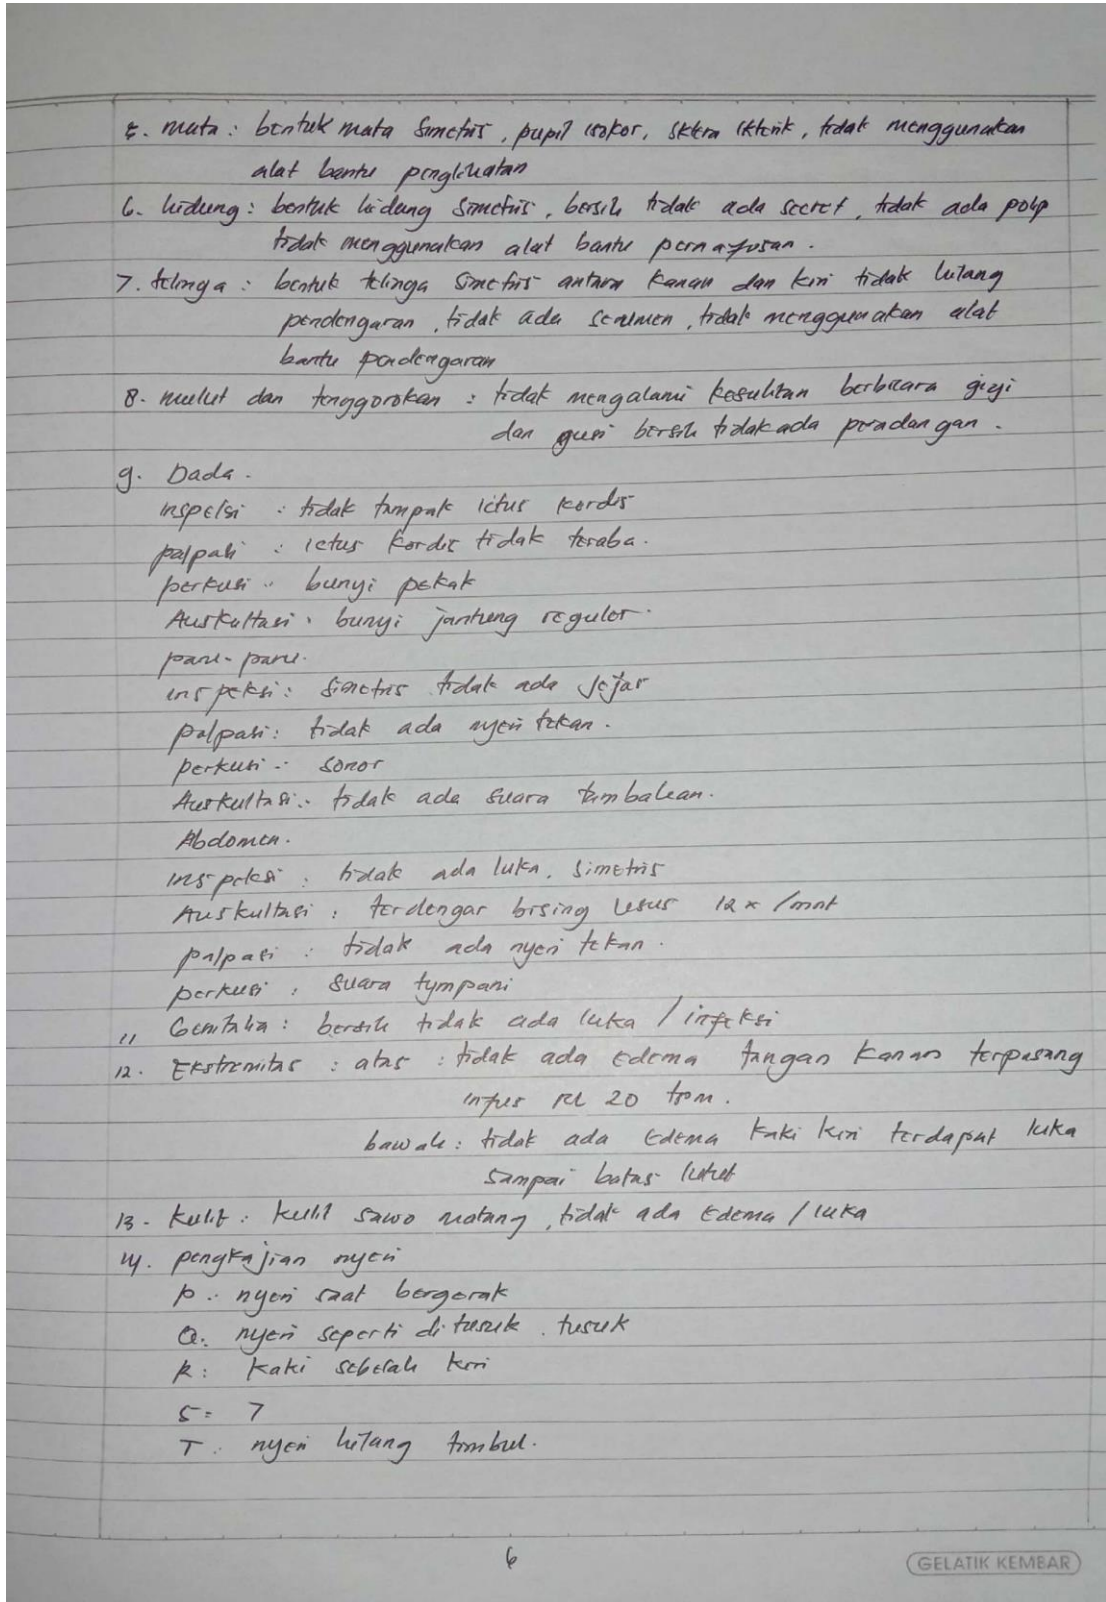 5. mata : bentuk mata simetris, pupil isokor, sklera ikterik, tidak menggunakan
alat bantu penglihatan
6. hidung : bentuk hidung simetris, bersih tidak ada secret, tidak ada polip
tidak menggunakan alat bantu pernafasan.
7. telinga : bentuk telinga simetris antara kanan dan kiri tidak hilang
pendengaran, tidak ada serumen, tidak menggunakan alat
bantu pendengaran
8. mulut dan tenggorokan : tidak mengalami kesulitan berbicara gigi
dan gusi bersih tidak ada peradangan.
9. Dada.
inspeksi : tidak tampak ictus kordis
palpasi : ictus kordis tidak teraba.
perkusi : bunyi pekak
Auskultasi : bunyi jantung reguler.
paru-paru.
inspeksi : simetris tidak ada jejas
palpasi : tidak ada nyeri tekan.
perkusi : sonor
Auskultasi : tidak ada suara tambahan.
Abdomen.
inspeksi : tidak ada luka, simetris
Auskultasi : terdengar bising usus 12 x /mnt
palpasi : tidak ada nyeri tekan.
perkusi : suara tympani
11 Genitalia : bersih tidak ada luka / infeksi
12. Ekstremitas : atas : tidak ada edema tangan kanan terpasang
infus RL 20 tpm.
bawah : tidak ada edema kaki kiri terdapat luka
sampai batas lutut
13. kulit : kulit sawo matang, tidak ada edema / luka
14. pengkajian nyeri
p : nyeri saat bergerak
Q : nyeri seperti di tusuk. tusuk
R : kaki sebelah kiri
S = 7
T : nyeri hilang timbul.
6
GELATIK KEMBAR